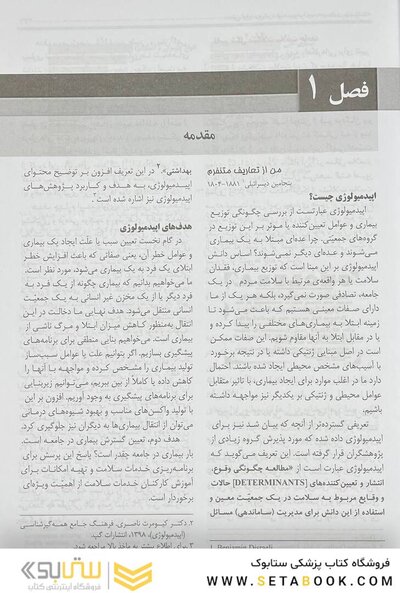 فصل ۱
مقدمه
من از تعاریف متنفرم
بنجامین دیسرائیلی ۱۸۸۱-۱۸۰۴
اپیدمیولوژی چیست؟
اپیدمیولوژی عبارتست از بررسی چگونگی توزیع
بیماری و عوامل تعیین‌کننده یا موثر بر این توزیع در
گروه‌های جمعیتی. چرا عده‌ای مبتلا به یک بیماری
می‌شوند و عده‌ای دیگر نمی‌شوند؟ اساس دانش
اپیدمیولوژی بر این مبنا است که توزیع بیماری، فقدان
سلامت یا هر واقعه‌ی مرتبط با سلامت مردم در یک
جامعه، تصادفی صورت نمی‌گیرد، بلکه هر یک از ما
دارای صفات معینی هستیم که باعث می‌شود تا
زمینه ابتلا به بیماری‌های مختلفی را پیدا کرده و
یا در مقابل ابتلا به آنها مقاوم شویم. این صفات ممکن
است در اصل مبنایی ژنتیکی داشته یا در نتیجه برخورد
با آسیب‌های مشخص محیطی ایجاد شده باشند. احتمال
دارد ما در اغلب موارد برای ایجاد بیماری، با تاثیر متقابل
عوامل محیطی و ژنتیکی بر یکدیگر نیز مواجهه داشته
باشیم.
تعریفی گسترده‌تر از آنچه که بیان شد نیز برای
اپیدمیولوژی داده شده که مورد پذیرش گروه زیادی از
پژوهشگران قرار گرفته است. این تعریف می‌گوید که
اپیدمیولوژی عبارت است از «مطالعه چگونگی وقوع،
انتشار و تعیین‌کننده‌های [DETERMINANTS] حالات
و وقایع مربوط به سلامت در یک جمعیت معین و
استفاده از این دانش برای مدیریت (ساماندهی) مسائل
1. Benjamin Disraeli
بهداشتی».۲ در این تعریف افزون بر توضیح محتوای
اپیدمیولوژی، به هدف و کاربرد پژوهش‌های
اپیدمیولوژی نیز اشاره شده است۳.
هدف‌های اپیدمیولوژی
در گام نخست تعیین سبب یا علت ایجاد یک بیماری
و عوامل خطر آن، یعنی صفاتی که باعث افزایش خطر
ابتلای یک فرد به یک بیماری می‌شود، مورد نظر است.
ما می‌خواهیم بدانیم که بیماری چگونه از یک فرد به
فرد دیگر یا از یک مخزن غیر انسانی به یک جمعیت
انسانی منتقل می‌شود. هدف نهایی ما دخالت در این
انتقال به‌منظور کاهش میزان ابتلا و مرگ ناشی از
بیماری است. می‌خواهیم بنایی منطقی برای برنامه‌های
پیشگیری بسازیم. اگر بتوانیم علت یا عوامل سبب‌ساز
تولید بیماری را مشخص کرده و مواجهه با آنها را
کاهش داده یا کاملاً از بین ببریم، می‌توانیم زیربنایی
برای برنامه‌های پیشگیری به وجود آوریم. افزون بر این
با تولید واکسن‌های مناسب و بهبود شیوه‌های درمانی
می‌توان از انتقال بیماری‌ها به دیگران نیز جلوگیری کرد.
هدف دوم، تعیین گسترش بیماری در جامعه است.
بار بیماری در جامعه چقدر است؟ پاسخ این پرسش برای
برنامه‌ریزی خدمات سلامت و تهیه امکانات برای
آموزش کارکنان خدمات سلامت از اهمیت ویژه‌ای
برخوردار است.
۲. دکتر کیومرث ناصری، فرهنگ جامع همه‌گیرشناسی
(اپیدمیولوژی)، ۱۳۹۸، انتشارات گپ.
۳. برای اطلاع بیشتر به مأخذ بالا مراجعه شود.
فروشگاه کتاب پزشکی ستابوک
WWW.SETABOOK.COM
ستابوک
فروشگاه اینترنتی کتاب